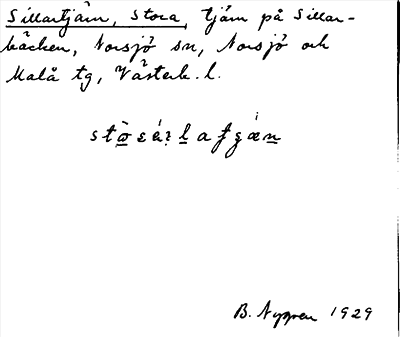 Sillartjärn, Stora, tjärn på Sillar-
bäcken, Norsjö sn, Norsjö och
Malå tg, Västerb. l.
B. Nygren 1929